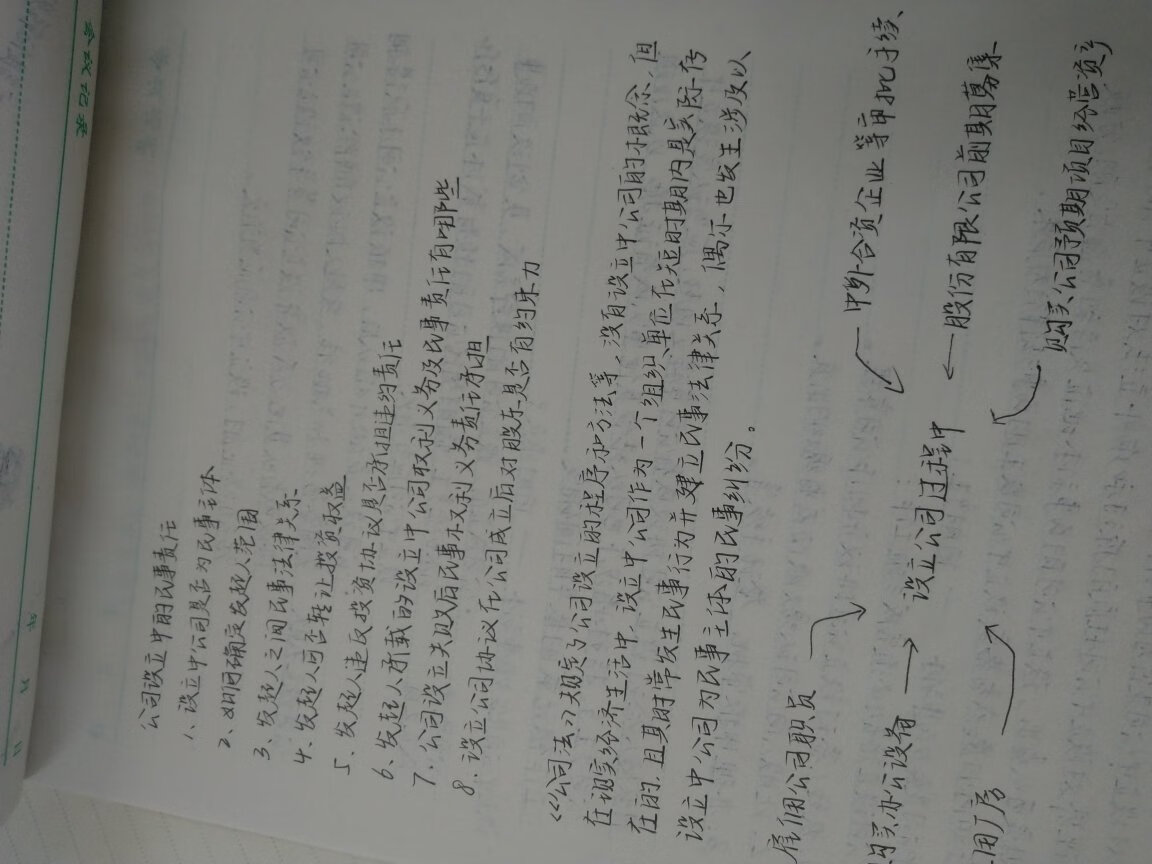 会议记录
公司设立中的民事责任
1、设立中公司是否为民事主体
2、如何确定发起人范围
3、发起人之间民事法律关系
4、发起人可否转让投资收益
5、发起人违反投资协议是否承担违约责任
6、发起人承载的设立中公司权利义务及民事责任有哪些
7、公司设立失败后民事权利义务责任承担
8、设立公司协议在公司成立后对股东是否有约束力
《公司法》规定了公司设立的程序和方法等，没有设立中公司的概念，但
在现实经济生活中，设立中公司作为一个组织单位在短时期内是实际存
在的，且其时常发生民事行为并建立民事法律关系，偶尔也发生涉及以
设立中公司为民事主体的民事纠纷。
雇佣公司职员
中外合资企业等审批手续、
购买办公设备
设立公司过程中
股份有限公司前期募集
用厂房
购买公司预期项目经营资产
年 月 日